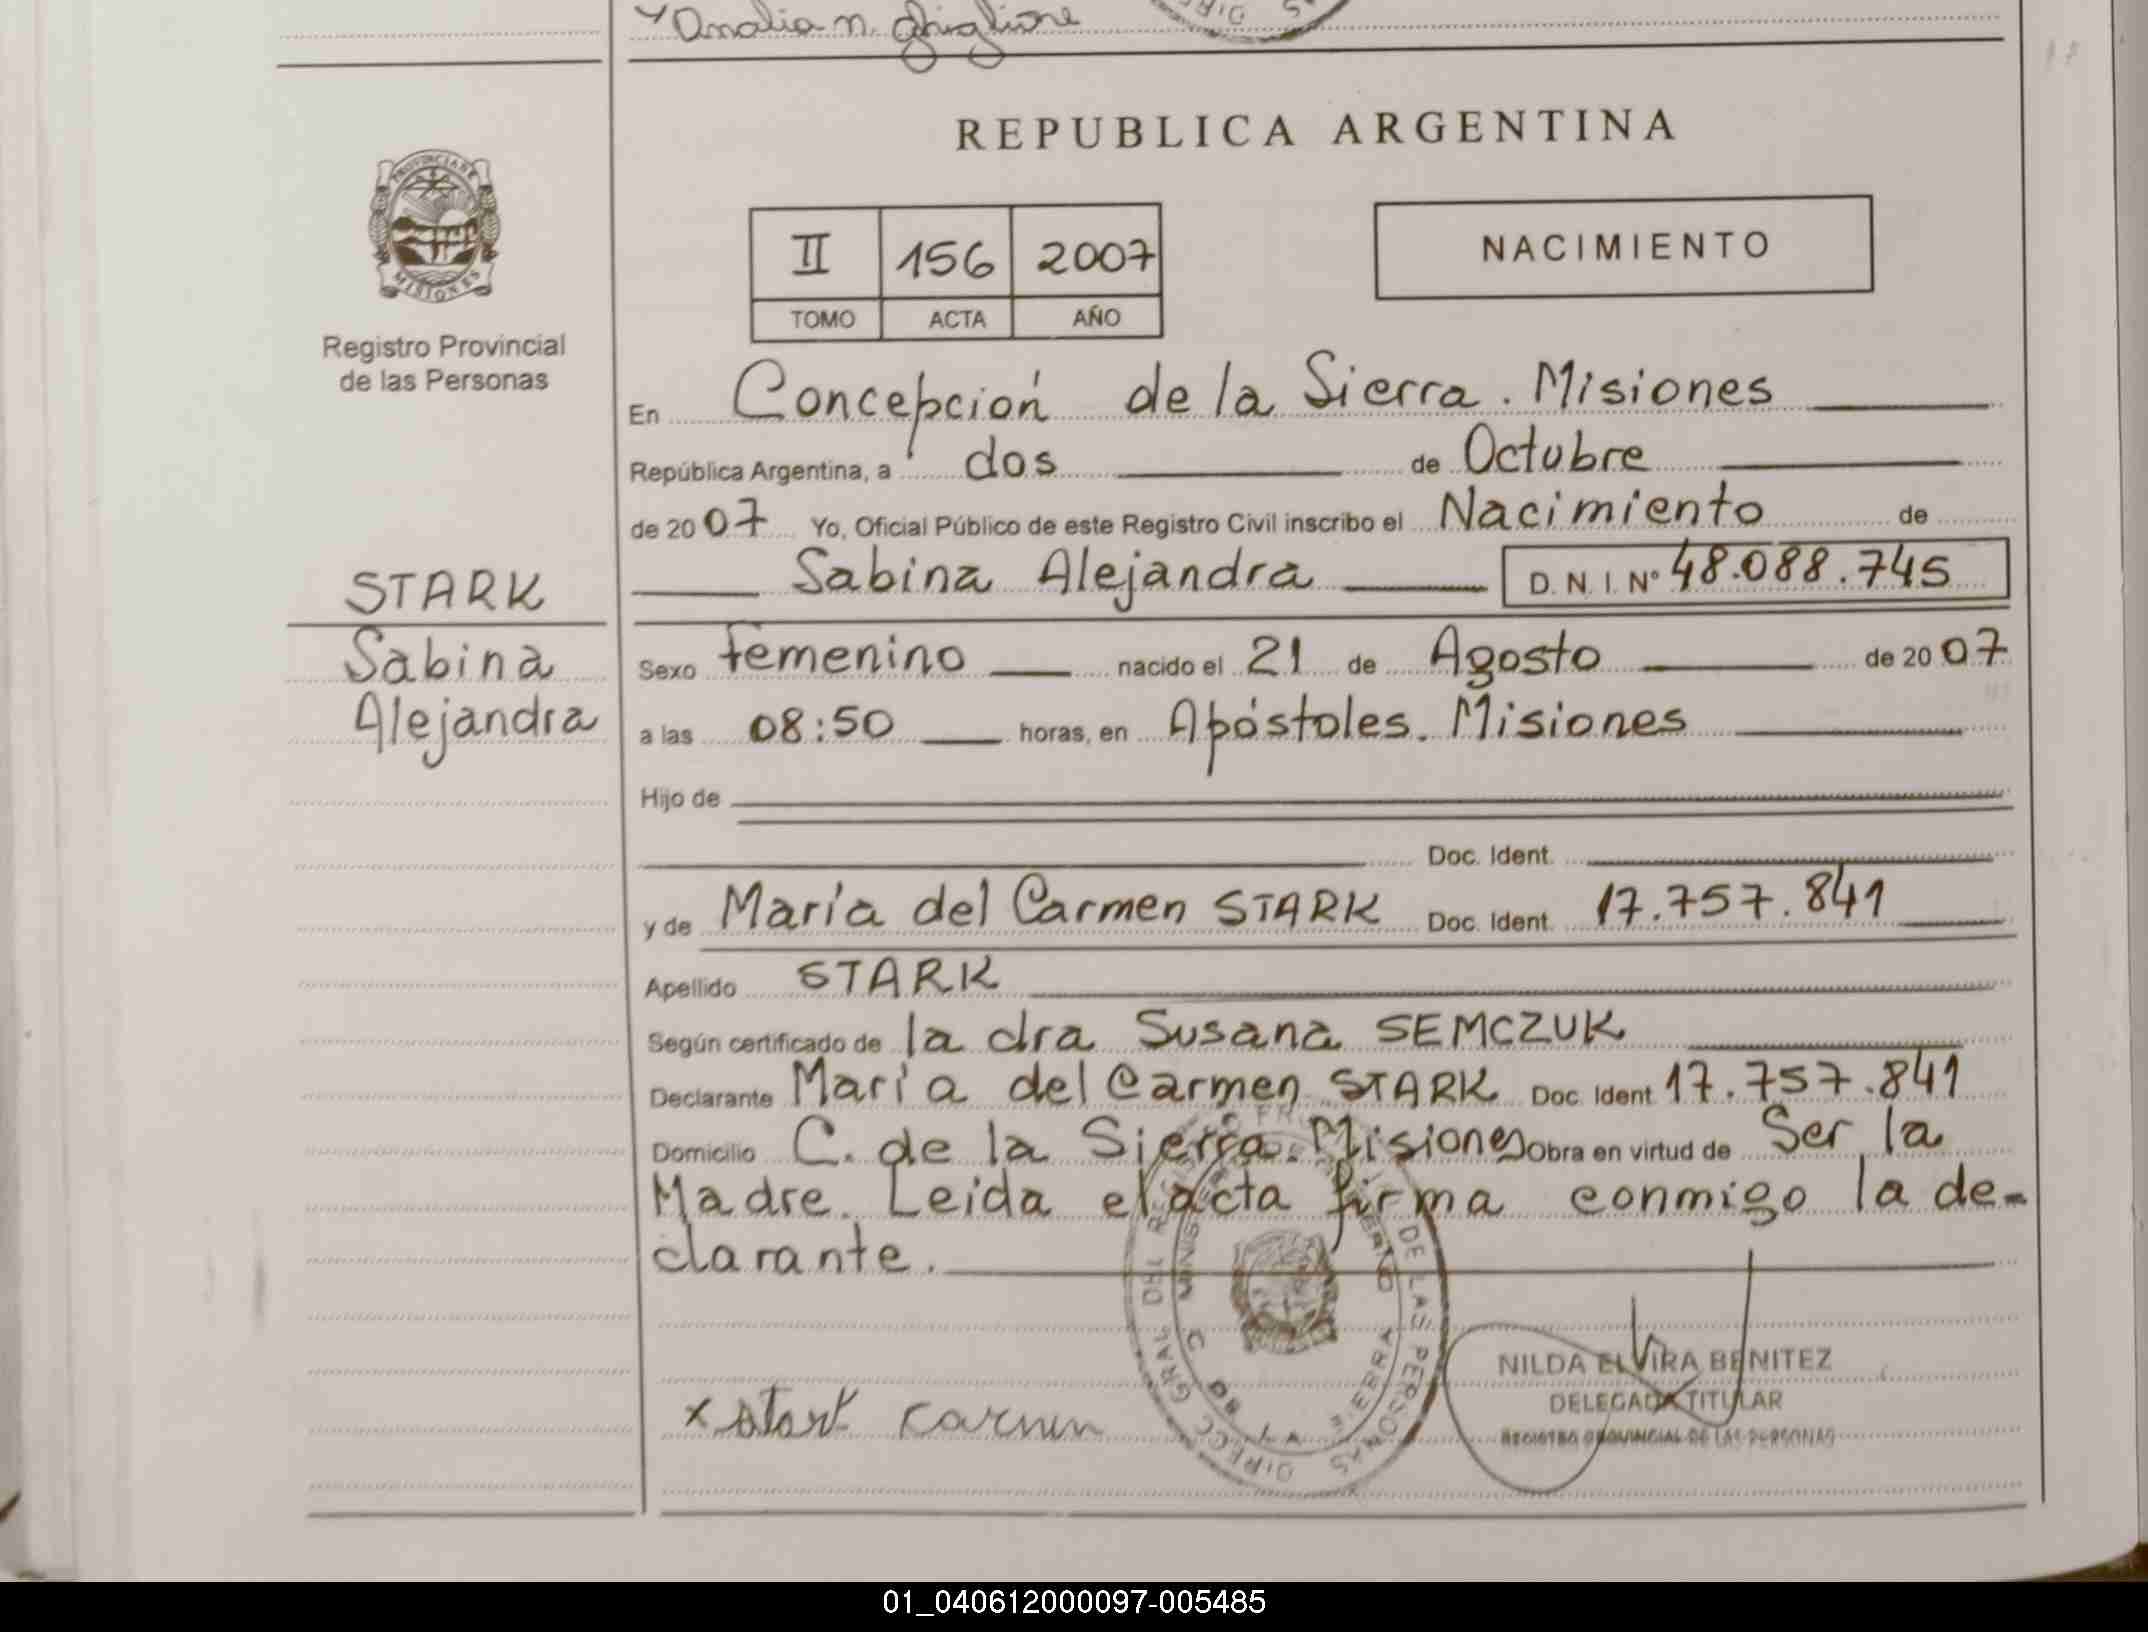 Analia n. Ghiglione
REPUBLICA ARGENTINA
PROVINCIA DE
MISIONES
Registro Provincial
de las Personas
II 156 2007
TOMO ACTA AÑO
NACIMIENTO
En Concepción de la Sierra. Misiones
República Argentina, a dos de Octubre
de 2007 Yo, Oficial Público de este Registro Civil inscribo el Nacimiento de
Sabina Alejandra D.N.I. Nº 48.088.745
STARK
Sabina
Alejandra
Sexo femenino nacido el 21 de Agosto de 2007
a las 08:50 horas, en Apóstoles. Misiones
Hijo de
Doc. Ident.
y de María del Carmen STARK Doc. Ident. 17.757.841
Apellido STARK
Según certificado de la dra Susana SEMCZUK
Declarante María del Carmen STARK Doc. Ident 17.757.841
Domicilio C. de la Sierra. Misiones Obra en virtud de Ser la
Madre. Leida el acta firma conmigo la de-
clarante.
DIRECC GRAL DEL DE LAS PERSONAS
NILDA ELVIRA BENITEZ
DELEGADA TITULAR
REGISTRO PROVINCIAL DE LAS PERSONAS
x Stark Carmen
01_040612000097-005485